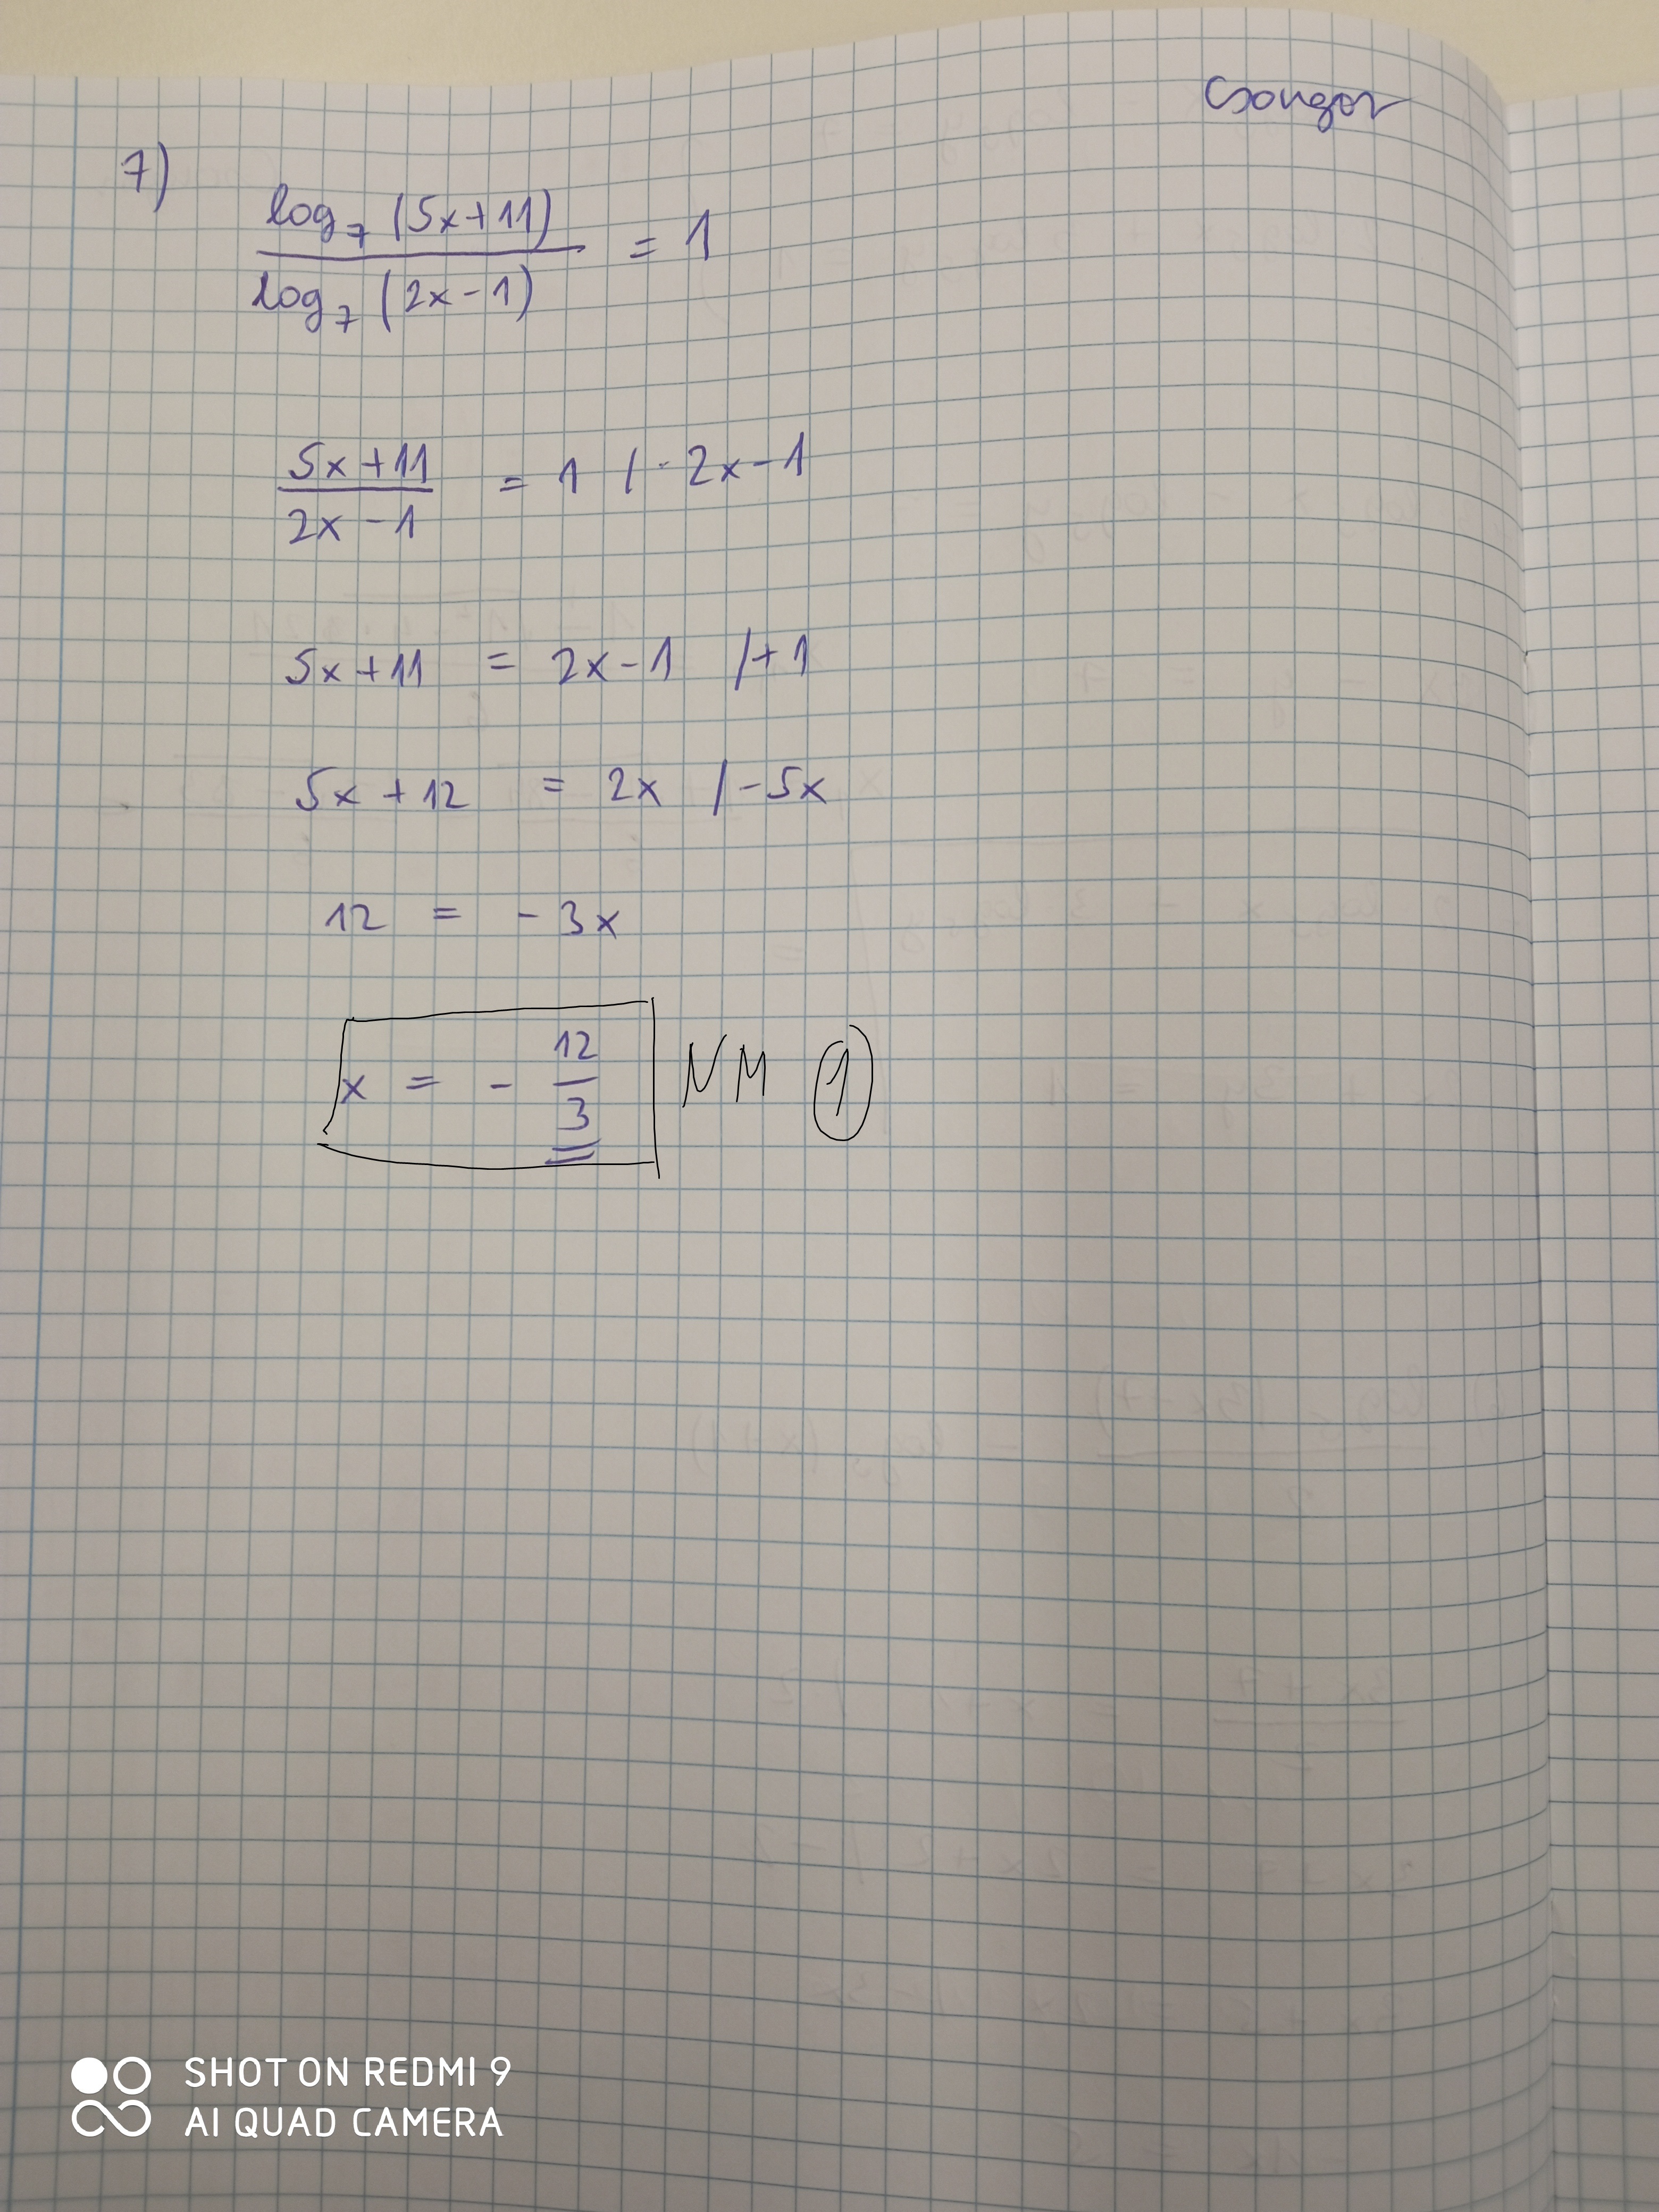 Csongor
7)
log₇ (5x+11)
log₇ (2x-1)
= 1
5x+11
2x-1
= 1 /· 2x-1
5x+11 = 2x-1 /+1
5x+12 = 2x /-5x
12 = -3x
x = - 12/3 NM 1
SHOT ON REDMI 9
AI QUAD CAMERA